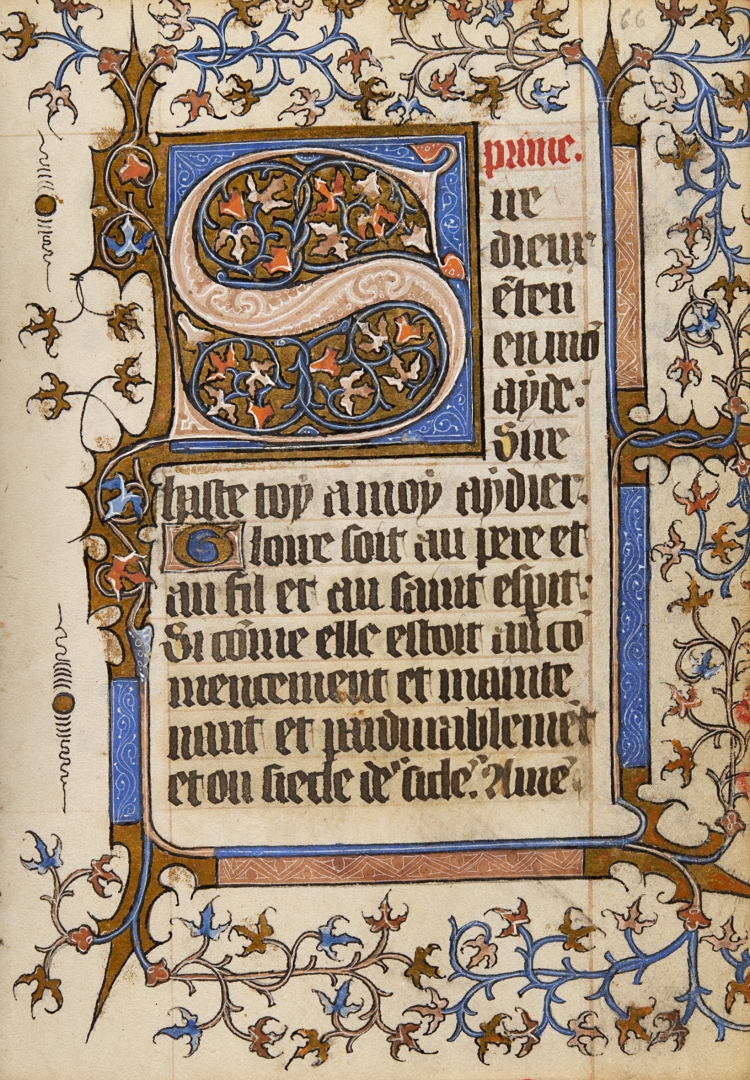 66
prime.
S
ire
dieux
ēten
en mō
aÿde:
Sire
haste toÿ a moÿ aÿdier.
Gloire soit au pere et
au fil et au saint esprit:
Si cōme elle estoit au cō
mencement et mainte
nant et pardurablemēt
et ou siecle des siecles. Amē